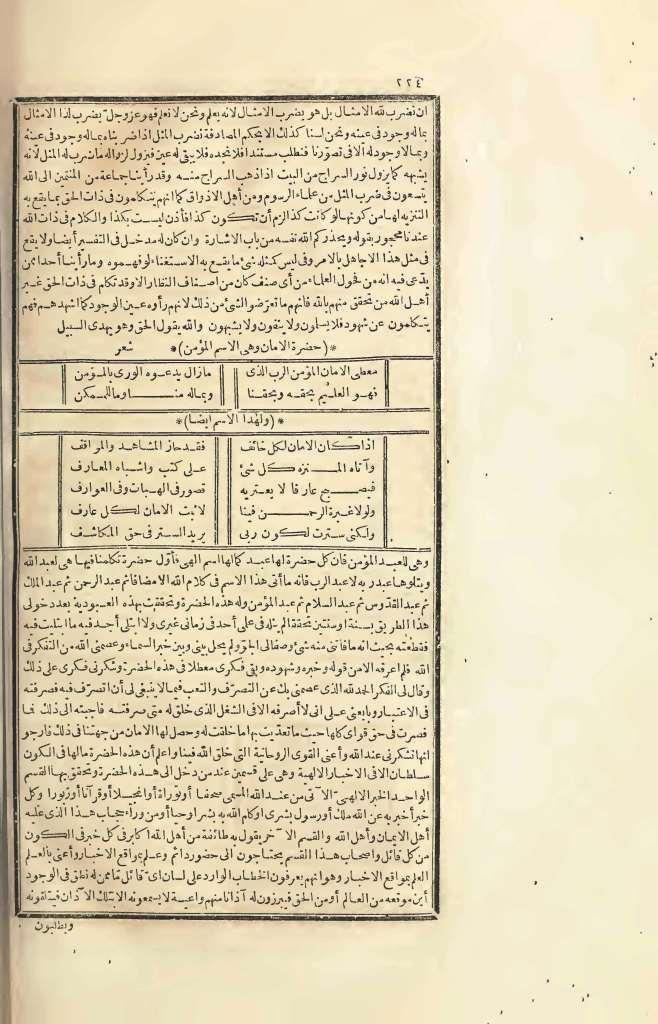 ٢٢٤
ان نضرب لله الامثال بل هو يضرب الامثال لانه يعلم ونحن لا نعلم فهو عز وجل يضرب لنا الامثال
بماله وجود فى عينه ونحن لسنا كذلك الا بحكم المصادفة نضرب المثل اذا ضربناه بماله وجود فى عينه
وبمالا وجود له الا فى تصورنا فنطلب مستندا فلا نجده فلا يبقى له عين فيزول لزواله ما ضرب له المثل لانه
يشبهه كما يزول نور السراج من البيت اذا ذهب السراج منه وقد رأينا جماعة من المنتمين الى الله
يتسعون فى ضرب المثل من علماء الرسوم ومن أهل الاذواق كما انهم يتكلمون فى ذات الحق بما يقع به
التنزيه لها من كونها لو كانت كذا لزم أن تكون كذا فاذن ليست بكذا والكلام فى ذات الله
عندنا محجور بقوله ويحذركم الله نفسه من باب الاشارة وان كان له مدخل فى التفسير أيضا ولا يقع
فى مثل هذا الا جاهل بالامر وفى ليس كمثله شئ ما يقع به الاستغناء لو فهموه وما رأينا أحدا ممن
يدعى فيه انه من فحول العلماء من أى صنف كان من اصناف النظار الا وقد تكلم فى ذات الحق غير
أهل الله من تحقق منهم بالله فانهم ما تعرضوا لشئ من ذلك لانهم رأوه عين الوجود كما أشهدهم فهم
يتكلمون عن شهود فلا يسلبون ولا ينفون ولا يشبهون والله يقول الحق وهو يهدى السبيل
*(حضرة الامان وهى الاسم المؤمن)* شعر
معطى الامان المؤمن الرب الذى مازال يدعوه الورى بالمؤمن
فهو العليم بحقه وبحقنا وبماله منا وما للممكن
*(ولهذا الاسم أيضا)*
اذا كان الامان لكل خائف فقد حاز المشاهد والمواقف
وآتاه المنزه كل شئ على كتب واشباه المعارف
فيصبح عارفا لا يعتريه قصور فى الهبات وفى العوارف
ولولا غيرة الرحمن فينا لابت الامان لكل عارف
ولكنى سترت لكون ربى يريد الستر فى حق المكاشف
وهى للعبد المؤمن فان كل حضرة لها عبد كمالها اسم الهى فأول حضرة تكلمنا فيها هى لعبد الله
ويتلوها عبد ربه لا عبد الرب فانه ما أتى هذا الاسم فى كلام الله الا مضافا ثم عبد الرحمن ثم عبد الملك
ثم عبد القدوس ثم عبد السلام ثم عبد المؤمن وله هذه الحضرة وتحققت بهذه العبودية بعد دخولى
هذا الطريق بسنة أو سنتين تحققا لم ينله فى علمى أحد فى زمانى غيرى ولا ابتلى أحد فيه ما ابتليت فيه
فقطعته بحيث انه ما فاتنى منه شئ وصفا لى الجو ولم يحل بينى وبين خبر السماء وعصمنى الله من التفكر فى
الله فلم أعرفه الا من قوله وخبره وشهوده وبقى فكرى معطلا فى هذه الحضرة وشكرنى فكرى على ذلك
وقال لى الفكر الحمد لله الذى عصمنى بك عن التصرف والتعب فيما لا ينبغى لى أن اتصرف فيه فصرفته
فى الاعتبار وبايعنى على انى لا أصرفه الا فى الشغل الذى خلق له متى صرفته فاجبته الى ذلك فما
قصرت فى حق قواى كلها حيث ما تعديت بها ما خلقت له وحصل لها الامان من جهتنا فى ذلك فارجو
انها تشكرنى عند الله وأعنى القوى الروحانية التى خلق الله فينا واعلم أن هذه الحضرة ما لها فى الكون
سلطان الا فى الاخبار الالهية وهى على قسمين عند من دخل الى هذه الحضرة وتحقق بها القسم
الواحد الخبر الالهى الآتى من عند الله المسمى صحفا أو توراة أو انجيلا أو قرآنا أو زبورا وكل
خبر أخبر به عن الله ملك أو رسول بشرى أو كلم الله به بشرا وحيا أو من وراء حجاب هذا الذى عليه
أهل الايمان وأهل الله والقسم الآخر يقول به طائفة من أهل الله أكابر فى كل خبر فى الكون
من كل قائل وأصحاب هذا القسم يحتاجون الى حضور دائم وعلم بمواقع الاخبار وأعنى بالعلم
العلم بمواقع الاخبار وهو انهم يعرفون الخطاب الوارد على لسان اى قائل كان ممن له نطق فى الوجود
أين موقعه من العالم أو من الحق فيبرزون له آذانا منهم واعية لا يسمعونه الا بتلك الآذان فيتلقونه
ويطلبون